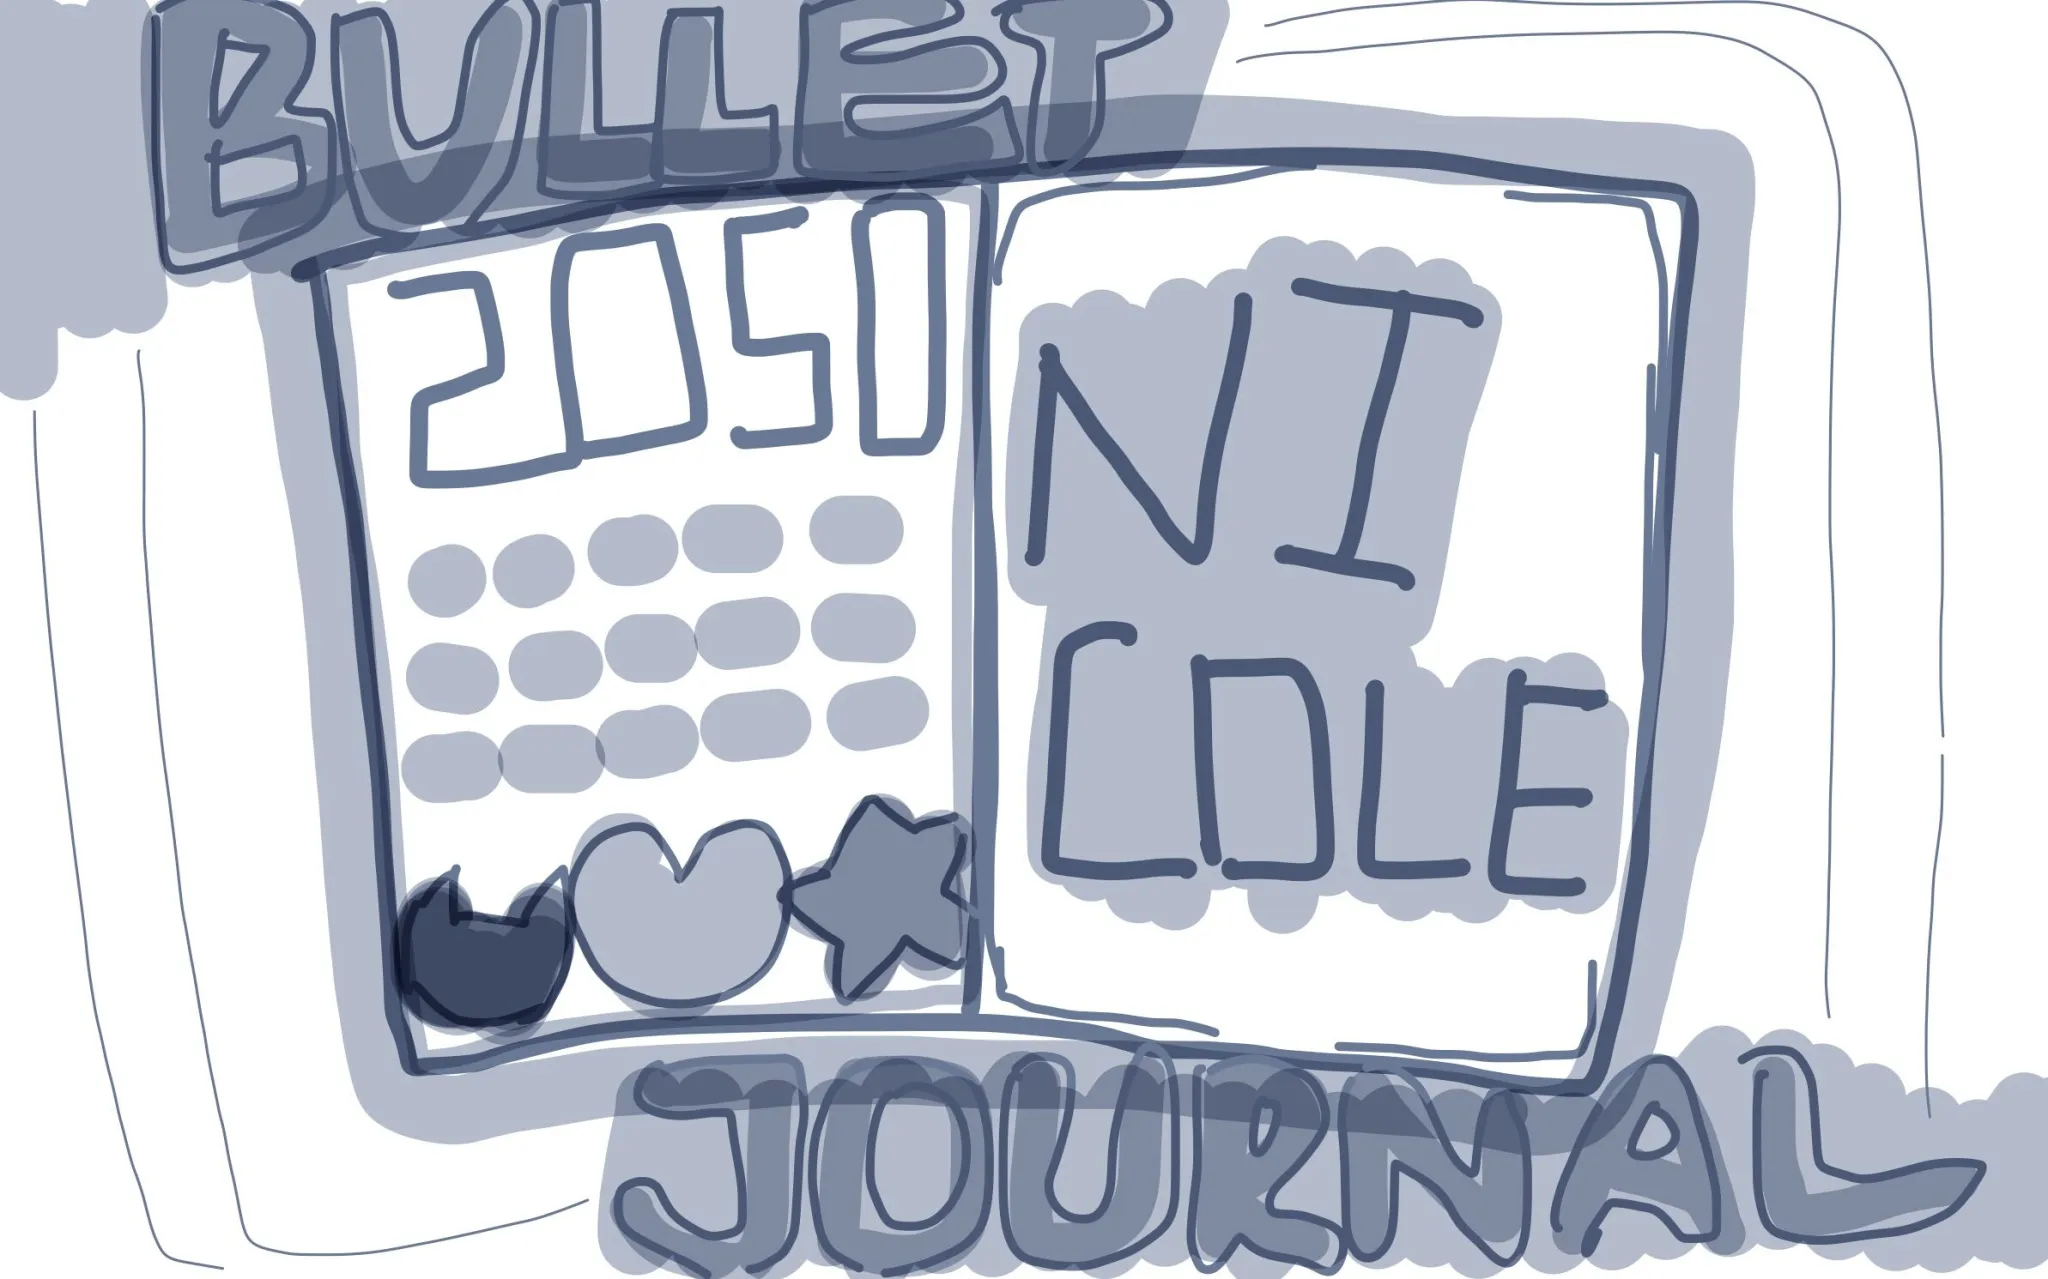 BULLET
2050
NI
COLE
JOURNAL